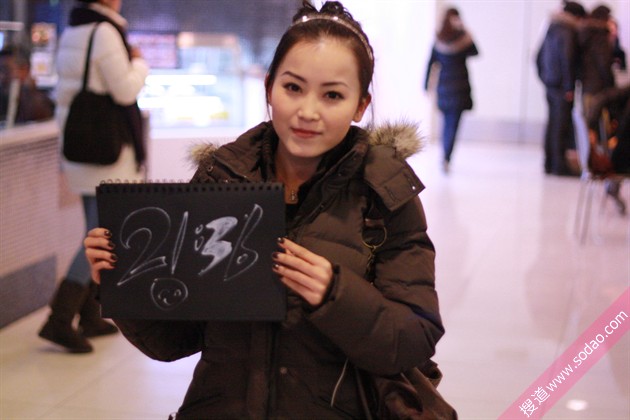 21:36
搜道 www.sodao.com